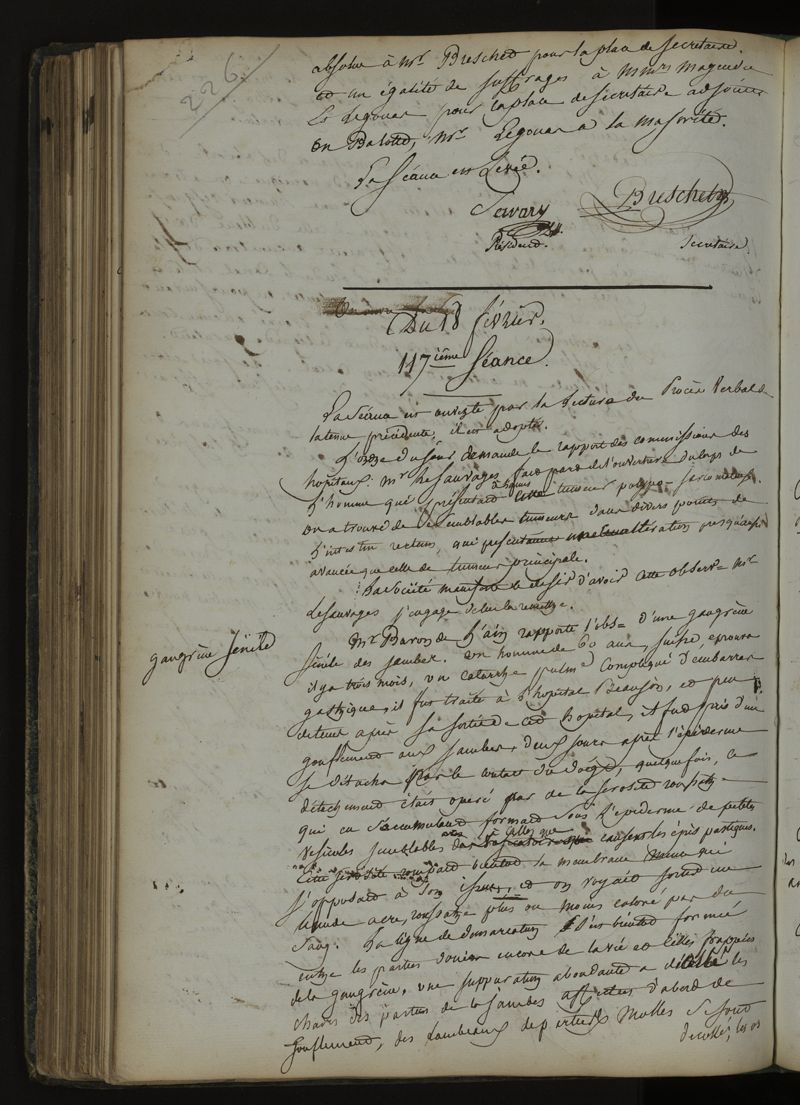 226.
absolue à Mr Breschet pour la place de secretaire.
et un égalité de suffrages à MMrs Magendie
& Legouas pour la place de secretaire adjoint
on Balotte, Mr Legouas a la majorité.
La Séance est Levée.
Savary
Breschet
Président.
Secretaire.
Du 18 février.
117ième Séance.
La Séance est ouverte par la lecture du Procès Verbal de
la tenue précédente, il est adopté.
L'ordre du jour demande le rapport des commissions des
hopitaux. Mr Lesauvages fait part de l'ouverture du corps de
l'homme qui présentait à l'anus tumeur
on a trouvé de semblables tumeurs dans divers points de
l'intestin rectum, qui altération presqu'aussi
avancée que celle de tumeur principale.
La Société manifeste le desir d'avoir cette observ= Mr
Lesauvages s'engage de la remettre.
gangrène Sénile
Mr Baron de rapporte l'obs= d'une gangrène
sénile des jambes. un homme de 60 ans, éprouva
il y a trois mois, un catarrhe pulmre Compliqué d'embarras
gastrique, il fut traité à l'hopital Beaujon, et peu
de tems après sa sortie de cet hopital, il fut pris d'un
gonflement aux jambes, deux jours après l'épiderme
se détacha par le contact du doigt, quelquefois, ce
détachement était opéré par de la sérosité roussatre
qui en s'accumulant formait sous l'épiderme de petites
vésicules semblables à celles que causent les épispastiques.
Cette sérosité rompait bientôt la membrane mince qui
s'opposait à son issue, et on voyait sortir un
liquide acre, roussatre plus ou moins coloré par du
sang. La ligne de demarcation s'est bientôt formée
entre les parties douées encore de la vie et celles frappées
de la gangrène, une suppuration abondante a détaché les
chairs des parties de la jambes affectées d'abord de
gonflement, des lambeaux de parties Molles se sont
decollés, les os